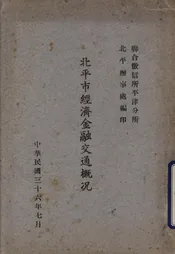 聯合徵信所平津分所
北平辦事處編印
北平市經濟金融交通概況
中華民國三十六年七月